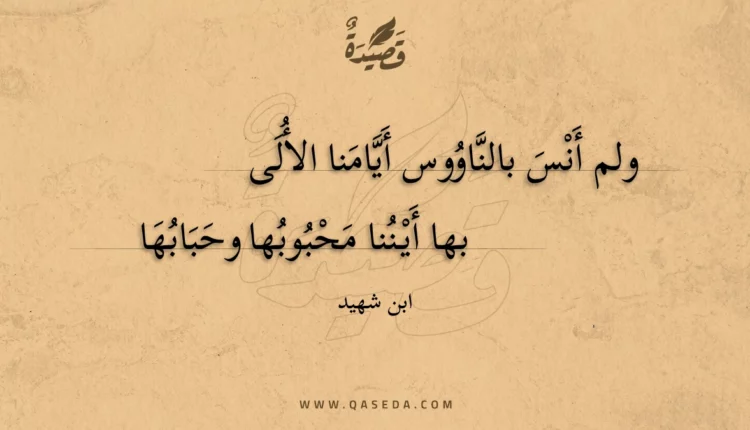 قَصِيْدَةٌ
ولم أَنْسَ بالنَّاوُوس أَيَّامَنا الأُلَى
بها أَيْنُنا مَحْبُوبُها وحَبَابُهَا
ابن شهيد
WWW.QASEDA.COM